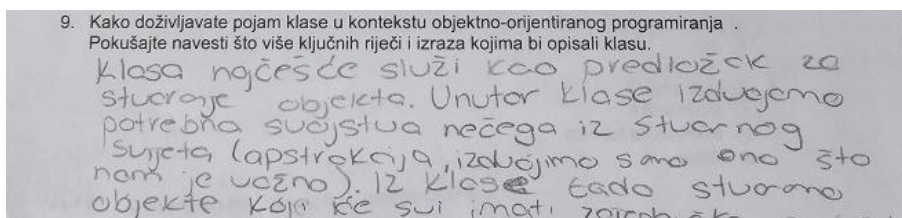 9. Kako doživljavate pojam klase u kontekstu objektno-orijentiranog programiranja .
Pokušajte navesti što više ključnih riječi i izraza kojima bi opisali klasu.
Klasa najčešće služi kao predložak za
stvaranje objekta. Unutar klase izdvajamo
potrebna svojstva nečega iz stvarnog
svijeta (apstrakcija, izdvojimo samo ono što
nam je važno). Iz klase tada stvaramo
objekte koji će svi imati